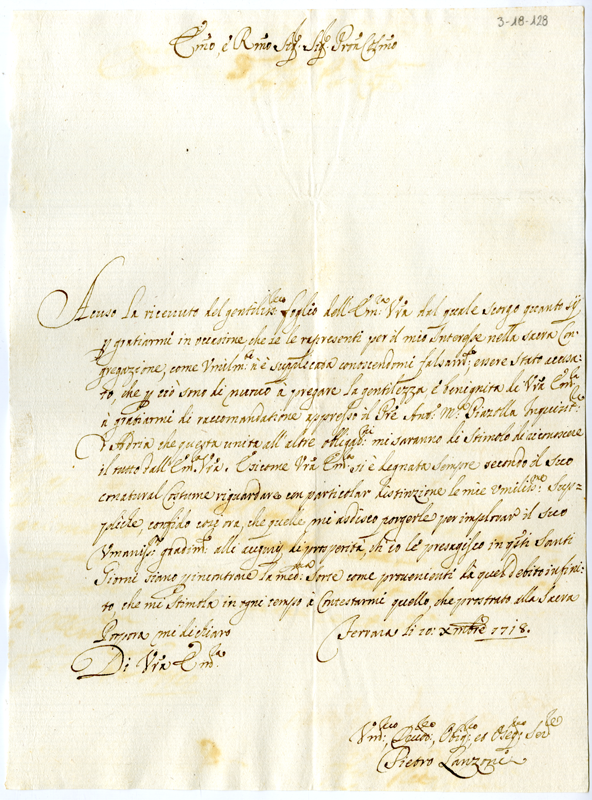 3-18-128
Emo, e Rmo Sig: Sig: Pron Colmo
Acuso la ricevuta del gentiliss: foglio dell'Em: Vra dal quale scorgo quanto sij
p gratiarmi in occasione che se le rapresenti per il mio Interesse nella sacra Con
gregazione, come Umilm:te n'è supplicata conoscendomi falsam:te essere stato accusa-
to, che p ciò sono di nuovo à pregare la gentilezza è benignità di Vra Em:a
à gratiarmi di raccomandatione appresso il Pre Ant: M:a Inquisit:re
d'Adria che questa unita all'altre obligat:ni mi saranno di stimolo di riconoscere
il tutto dall'Em:a Vra. E sicome Vra Em:a si è degnata sempre secondo il suo
connatural Costume riguardare con particolar distinzione le mie umilis: Sup-
pliche, confido cosi ora, che quelle mi ardisco porgerle per implorar il suo
Umaniss: gradim:to alli auguri di prosperità, ch'io le presagisco in q:ti Santi
Giorni siano p incontrare la med:ma Sorte come provenienti da quel debito infini-
to che mi stimola in ogni tempo à Contestarmi quello, che prostrato alla Sacra
Porpora mi dichiaro
Ferrara li 20: Xmbre 1718.
Di Vra Em:a
Um:, Devot:, Oblig: et Oseq: Ser:
Pietro Lanzoni